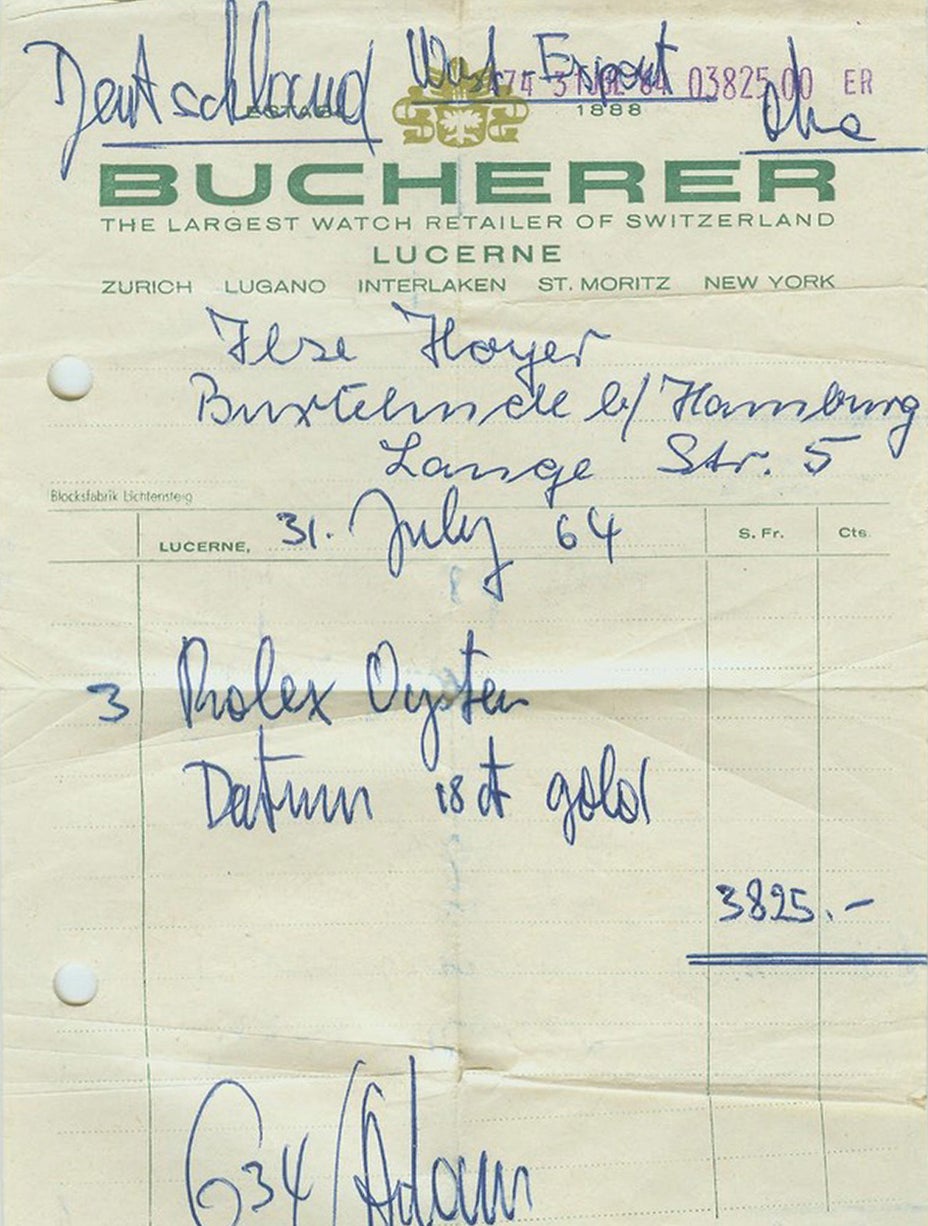 Deutschland West Export
74 31 JUL 64 03825.00 ER
ESTABL 1888
BUCHERER
THE LARGEST WATCH RETAILER OF SWITZERLAND
LUCERNE
ZURICH LUGANO INTERLAKEN ST. MORITZ NEW YORK
Ilse Hoyer
Buxtehude b/Hamburg
Lange Str. 5
Blocksfabrik Lichtensteig
LUCERNE, 31. July 64 S. Fr. Cts.
3 Rolex Oyster
Datum 18 ct gold
3825.-
634/Adam